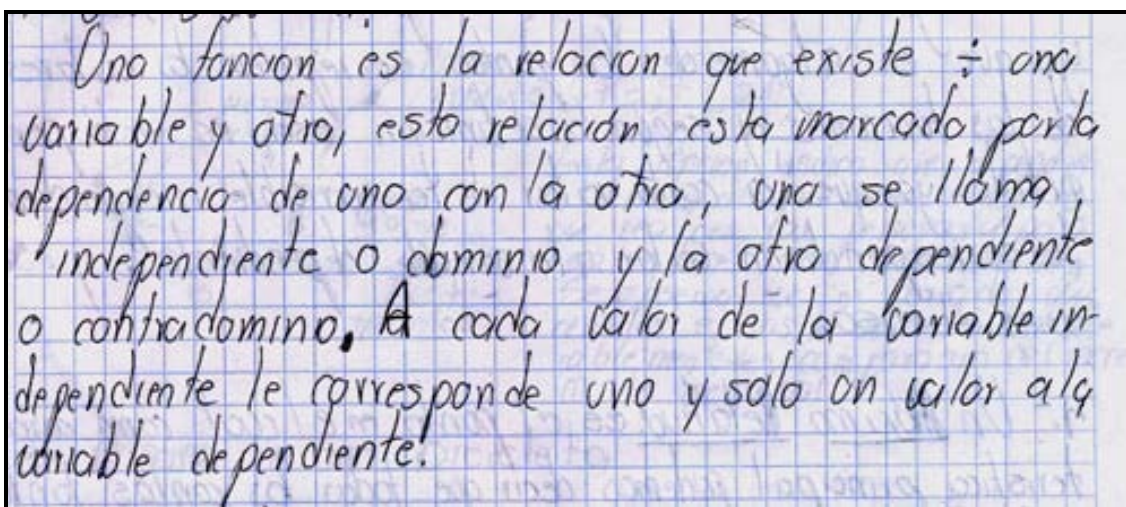 Una funcion es la relacion que existe ÷ una
variable y otra, esta relación esta marcada por la
dependencia de una con la otra, una se llama
independiente o dominio y la otra dependiente
o contradomino. A cada valor de la variable in-
dependiente le corresponde uno y solo un valor a la
variable dependiente.